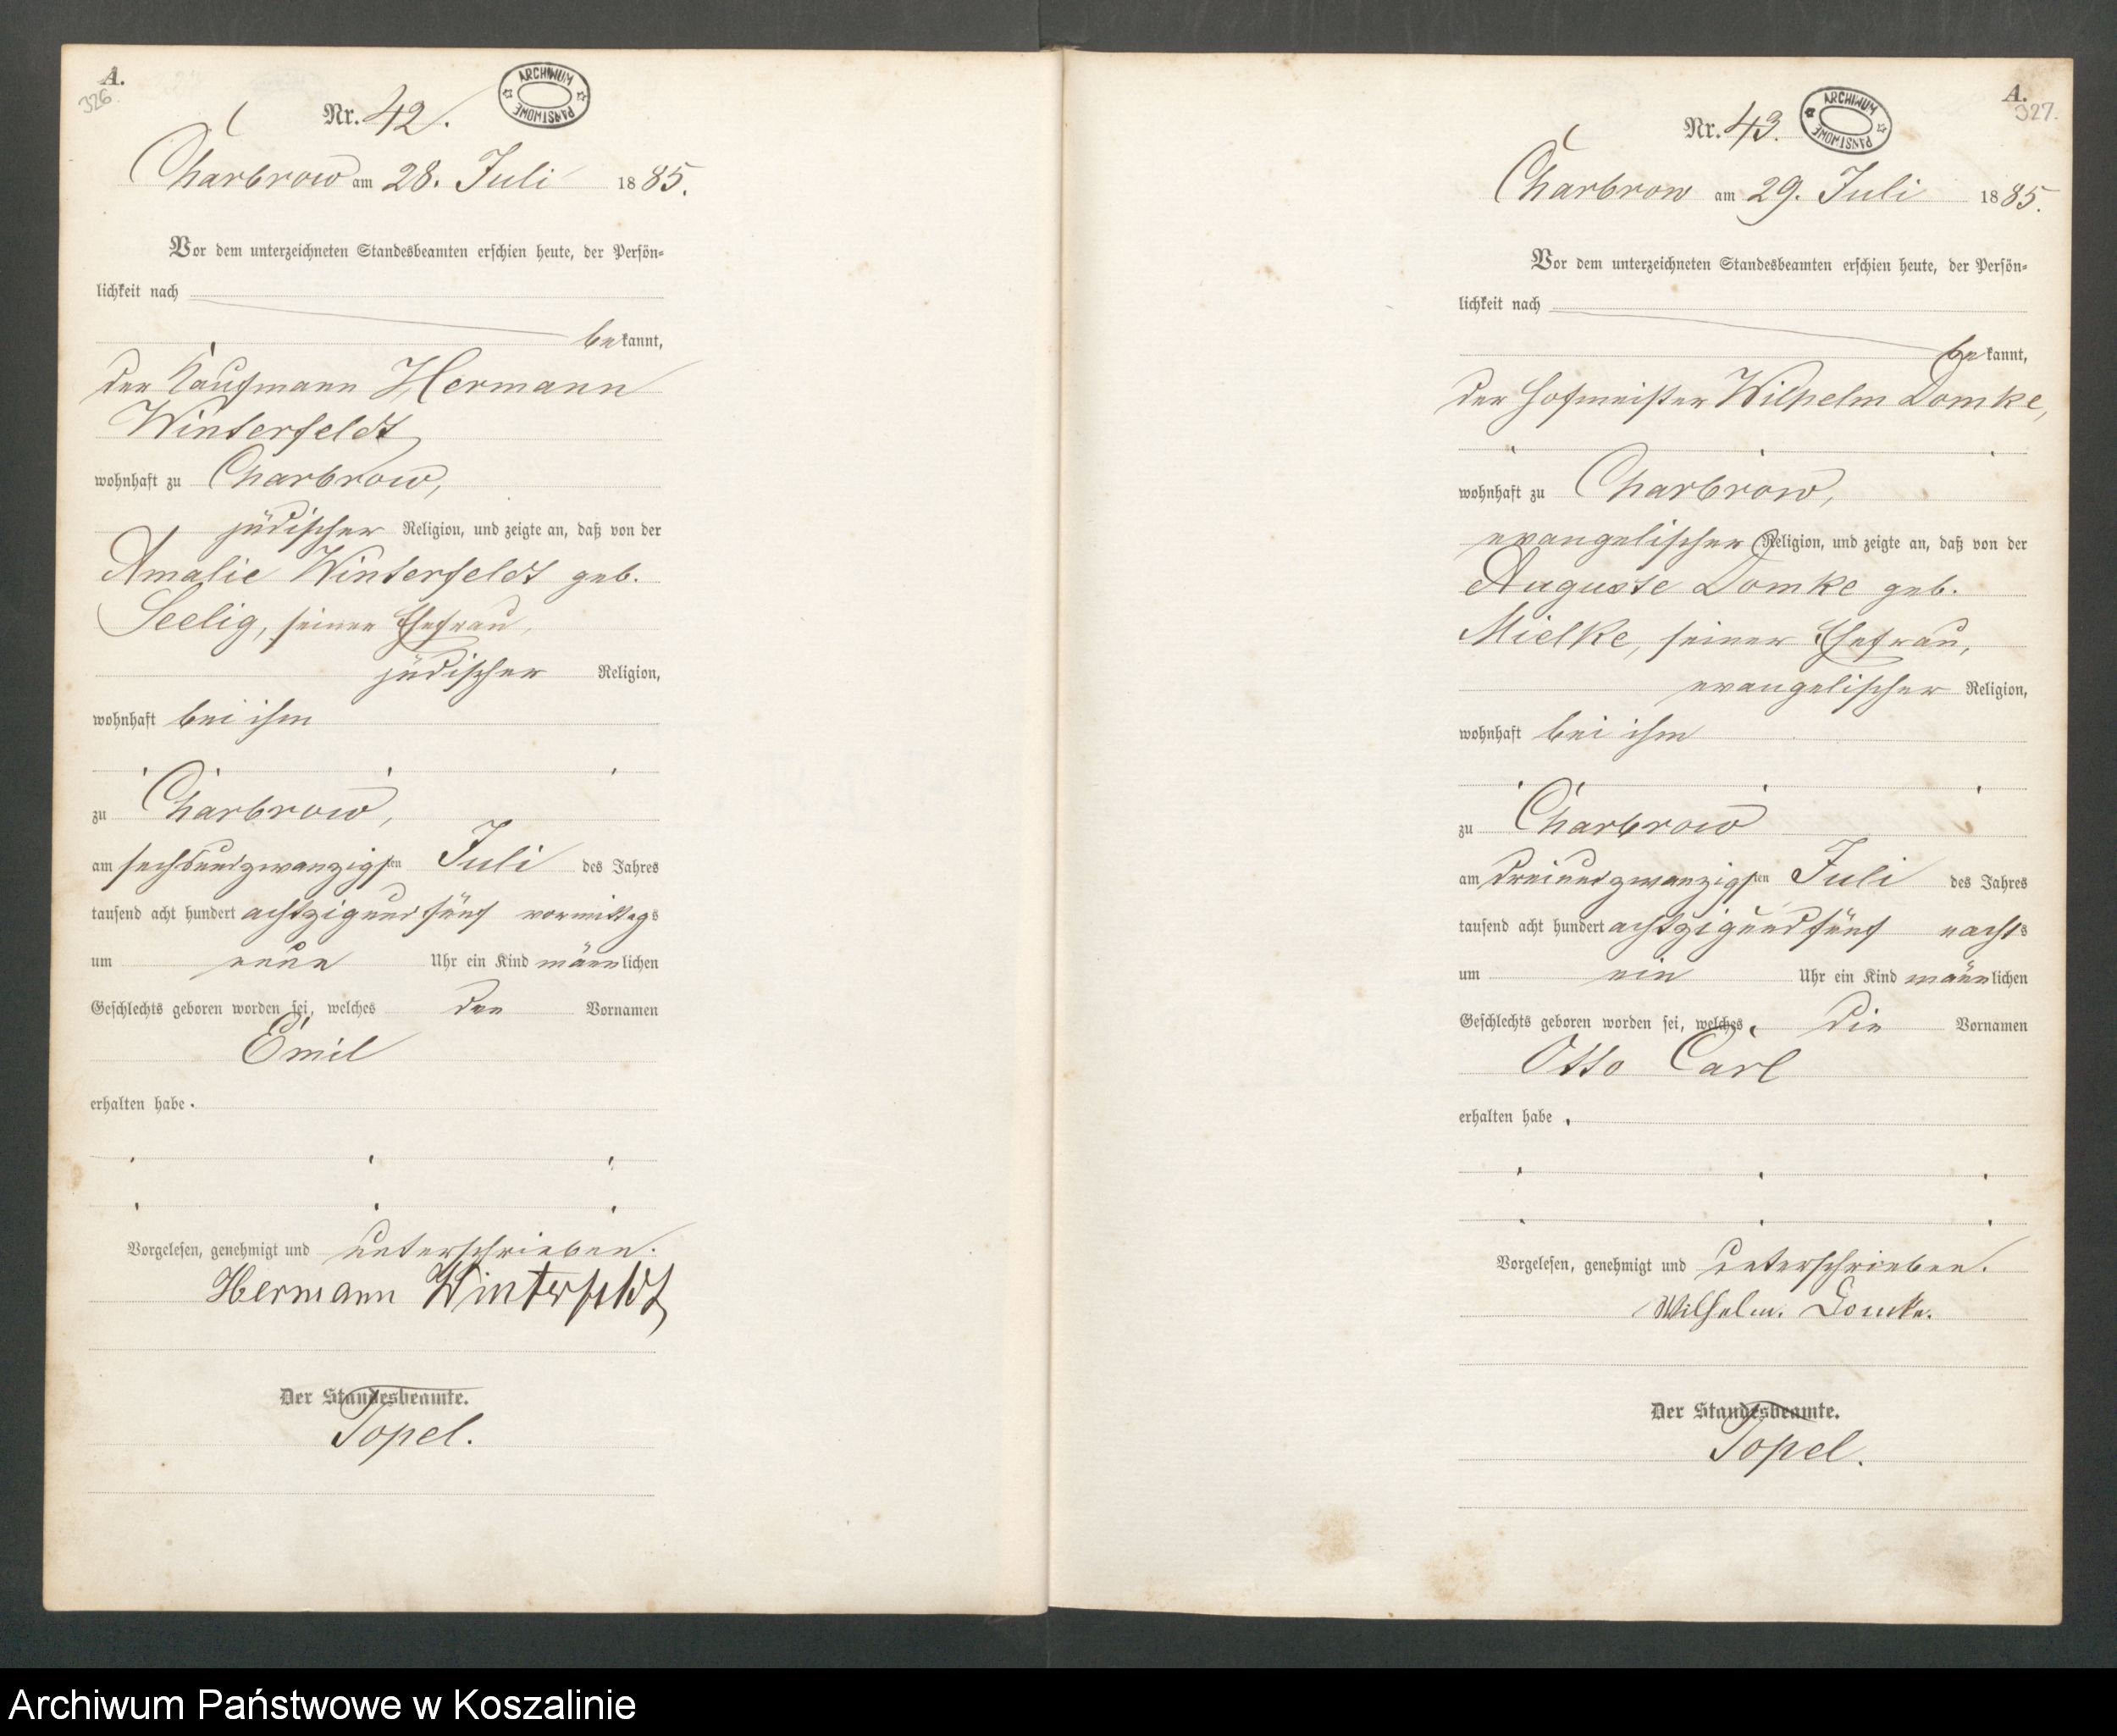 A.
326.
Nr. 42.
ARCHIWUM PAŃSTWOWE
Charbrow am 28. Juli 1885.
Vor dem unterzeichneten Standesbeamten erschien heute, der Persön-
lichkeit nach
bekannt,
der Kaufmann Hermann
Winterfeldt
wohnhaft zu Charbrow,
jüdischer Religion, und zeigte an, daß von der
Amalie Winterfeldt geb.
Seelig, seiner Ehefrau,
jüdischer Religion,
wohnhaft bei ihm
zu Charbrow,
am sechsundzwanzigsten Juli des Jahres
tausend acht hundert achtzigundfünf vormittags
um neun Uhr ein Kind männlichen
Geschlechts geboren worden sei, welches den Vornamen
Emil
erhalten habe.
Vorgelesen, genehmigt und unterschrieben.
Hermann Winterfeldt
Der Standesbeamte.
Topel.
A.
327.
Nr. 43.
ARCHIWUM PAŃSTWOWE
Charbrow am 29. Juli 1885.
Vor dem unterzeichneten Standesbeamten erschien heute, der Persön-
lichkeit nach
bekannt,
der Hofmeister Wilhelm Domke,
wohnhaft zu Charbrow,
evangelischer Religion, und zeigte an, daß von der
Auguste Domke geb.
Mielke, seiner Ehefrau,
evangelischer Religion,
wohnhaft bei ihm
zu Charbrow
am dreiundzwanzigsten Juli des Jahres
tausend acht hundert achtzigundfünf nachts
um ein Uhr ein Kind männlichen
Geschlechts geboren worden sei, welches die Vornamen
Otto Carl
erhalten habe.
Vorgelesen, genehmigt und unterschrieben.
Wilhelm. Domke.
Der Standesbeamte.
Topel.
Archiwum Państwowe w Koszalinie